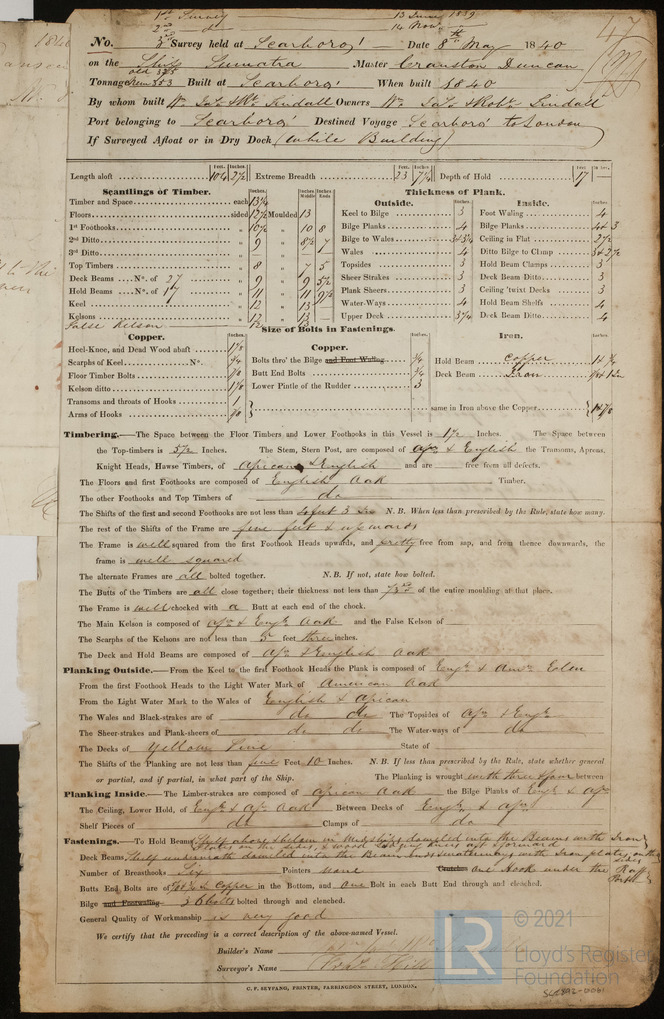 1st Survey 13 June 1839
2nd d 14 Nov.
No. 3 Survey held at Scarboro' Date 8th May 1840
on the Ship Sumatra Master Cranston Duncan
Tonnage old 375 New 353 Built at Scarboro' When built 1840
By whom built Wm Jno & Rt Tindall Owners Wm Jno & Robt Tindall
Port belonging to Scarboro' Destined Voyage Scarboro' to London
If Surveyed Afloat or in Dry Dock (While Building)
47
Length aloft Feet. 104 Inches. 2½ Extreme Breadth Feet. 23 Inches. 7¼ Depth of Hold Feet 17 Inches.
Scantlings of Timber. Thickness of Plank.
Timber and Space each 13¾ Outside. Inside.
Floors sided 12½ Moulded 13 Keel to Bilge 3 Foot Waling 4
1st Foothooks 10½ 10 8 Bilge Planks 4 Bilge Planks 4 3
2nd Ditto 9 8½ 7 Bilge to Wales Ceiling in Flat 2½
3rd Ditto Wales 4 Ditto Bilge to Clamp 3 2½
Top Timbers 8 7 5 Topsides 3 Hold Beam Clamps 3
Deck Beams No. of 27 9 9 5½ Sheer Strakes 3 Deck Beam Ditto 3
Hold Beams No. of 17 11 11 9½ Plank Sheers 3 Ceiling 'twixt Decks 3
Keel 12 13 Water-Ways 4 Hold Beam Shelfs 4
Kelsons 12 13 Upper Deck 3¼ Deck Beam Ditto 4
False Kelson 12
Size of Bolts in Fastenings.
Copper. Copper. Iron.
Heel-Knee, and Dead Wood abaft 1⅛ Bolts thro' the Bilge and Foot Waling ¾ Hold Beam Copper
Scarphs of Keel No. ¾ Butt End Bolts ¾ Deck Beam Iron
Floor Timber Bolts 1⅛ Lower Pintle of the Rudder 3
Kelson ditto 1⅛
Transoms and throats of Hooks 1 same in Iron above the Copper
Arms of Hooks
Timbering.—The Space between the Floor Timbers and Lower Foothooks in this Vessel is 1½ Inches. The Space between
the Top-timbers is 5½ Inches. The Stem, Stern Post, are composed of Afn & English the Transoms, Aprons,
Knight Heads, Hawse Timbers, of African & English and are free from all defects.
The Floors and first Foothooks are composed of English Oak Timber.
The other Foothooks and Top Timbers of do
The Shifts of the first and second Foothooks are not less than 4 feet 3 In N. B. When less than prescribed by the Rule, state how many.
The rest of the Shifts of the Frame are five feet & upwards
The Frame is well squared from the first Foothook Heads upwards, and pretty free from sap, and from thence downwards, the
frame is well squared
The alternate Frames are all bolted together. N. B. If not, state how bolted.
The Butts of the Timbers are all close together; their thickness not less than ⅓rd of the entire moulding at that place.
The Frame is well chocked with a Butt at each end of the chock.
The Main Kelson is composed of Afn & Engh Oak and the False Kelson of
The Scarphs of the Kelsons are not less than 5 feet three inches.
The Deck and Hold Beams are composed of Afn & English Oak
Planking Outside.—From the Keel to the first Foothook Heads the Plank is composed of Engh & Amn Elm
From the first Foothook Heads to the Light Water Mark of American Oak
From the Light Water Mark to the Wales of English & African
The Wales and Black-strakes are of do do The Topsides of Afn & Engh
The Sheer-strakes and Plank-sheers of do do The Water-ways of do
The Decks of Yellow Pine State of
The Shifts of the Planking are not less than five Feet 10 Inches. N. B. If less than prescribed by the Rule, state whether general
or partial, and if partial, in what part of the Ship. The Planking is wrought with three & four between
Planking Inside.—The Limber-strakes are composed of African Oak the Bilge Planks of Engh & Afn
The Ceiling, Lower Hold, of Engh & Afn Oak Between Decks of Engh & Afn
Shelf Pieces of do Clamps of do
Fastenings.—To Hold Beams Shelf above & below in Midships dowelled into the Beams with Iron
plates on the sides, & wood lodging knees aft & forward
Deck Beams Shelf underneath dowelled into the Beam ends & waterways with Iron plates on the sides
Number of Breasthooks Six Pointers none Crutches one Hook under the
Butts End Bolts are of Copper in the Bottom, and one Bolt in each Butt End through and clenched.
Bilge and Footwaling bolted through and clenched.
General Quality of Workmanship is very good
We certify that the preceding is a correct description of the above-named Vessel.
Builder's Name
Surveyor's Name
C. F. SEYFANG, PRINTER, FARRINGDON STREET, LONDON.
© 2021
LR Lloyd's Register
Foundation